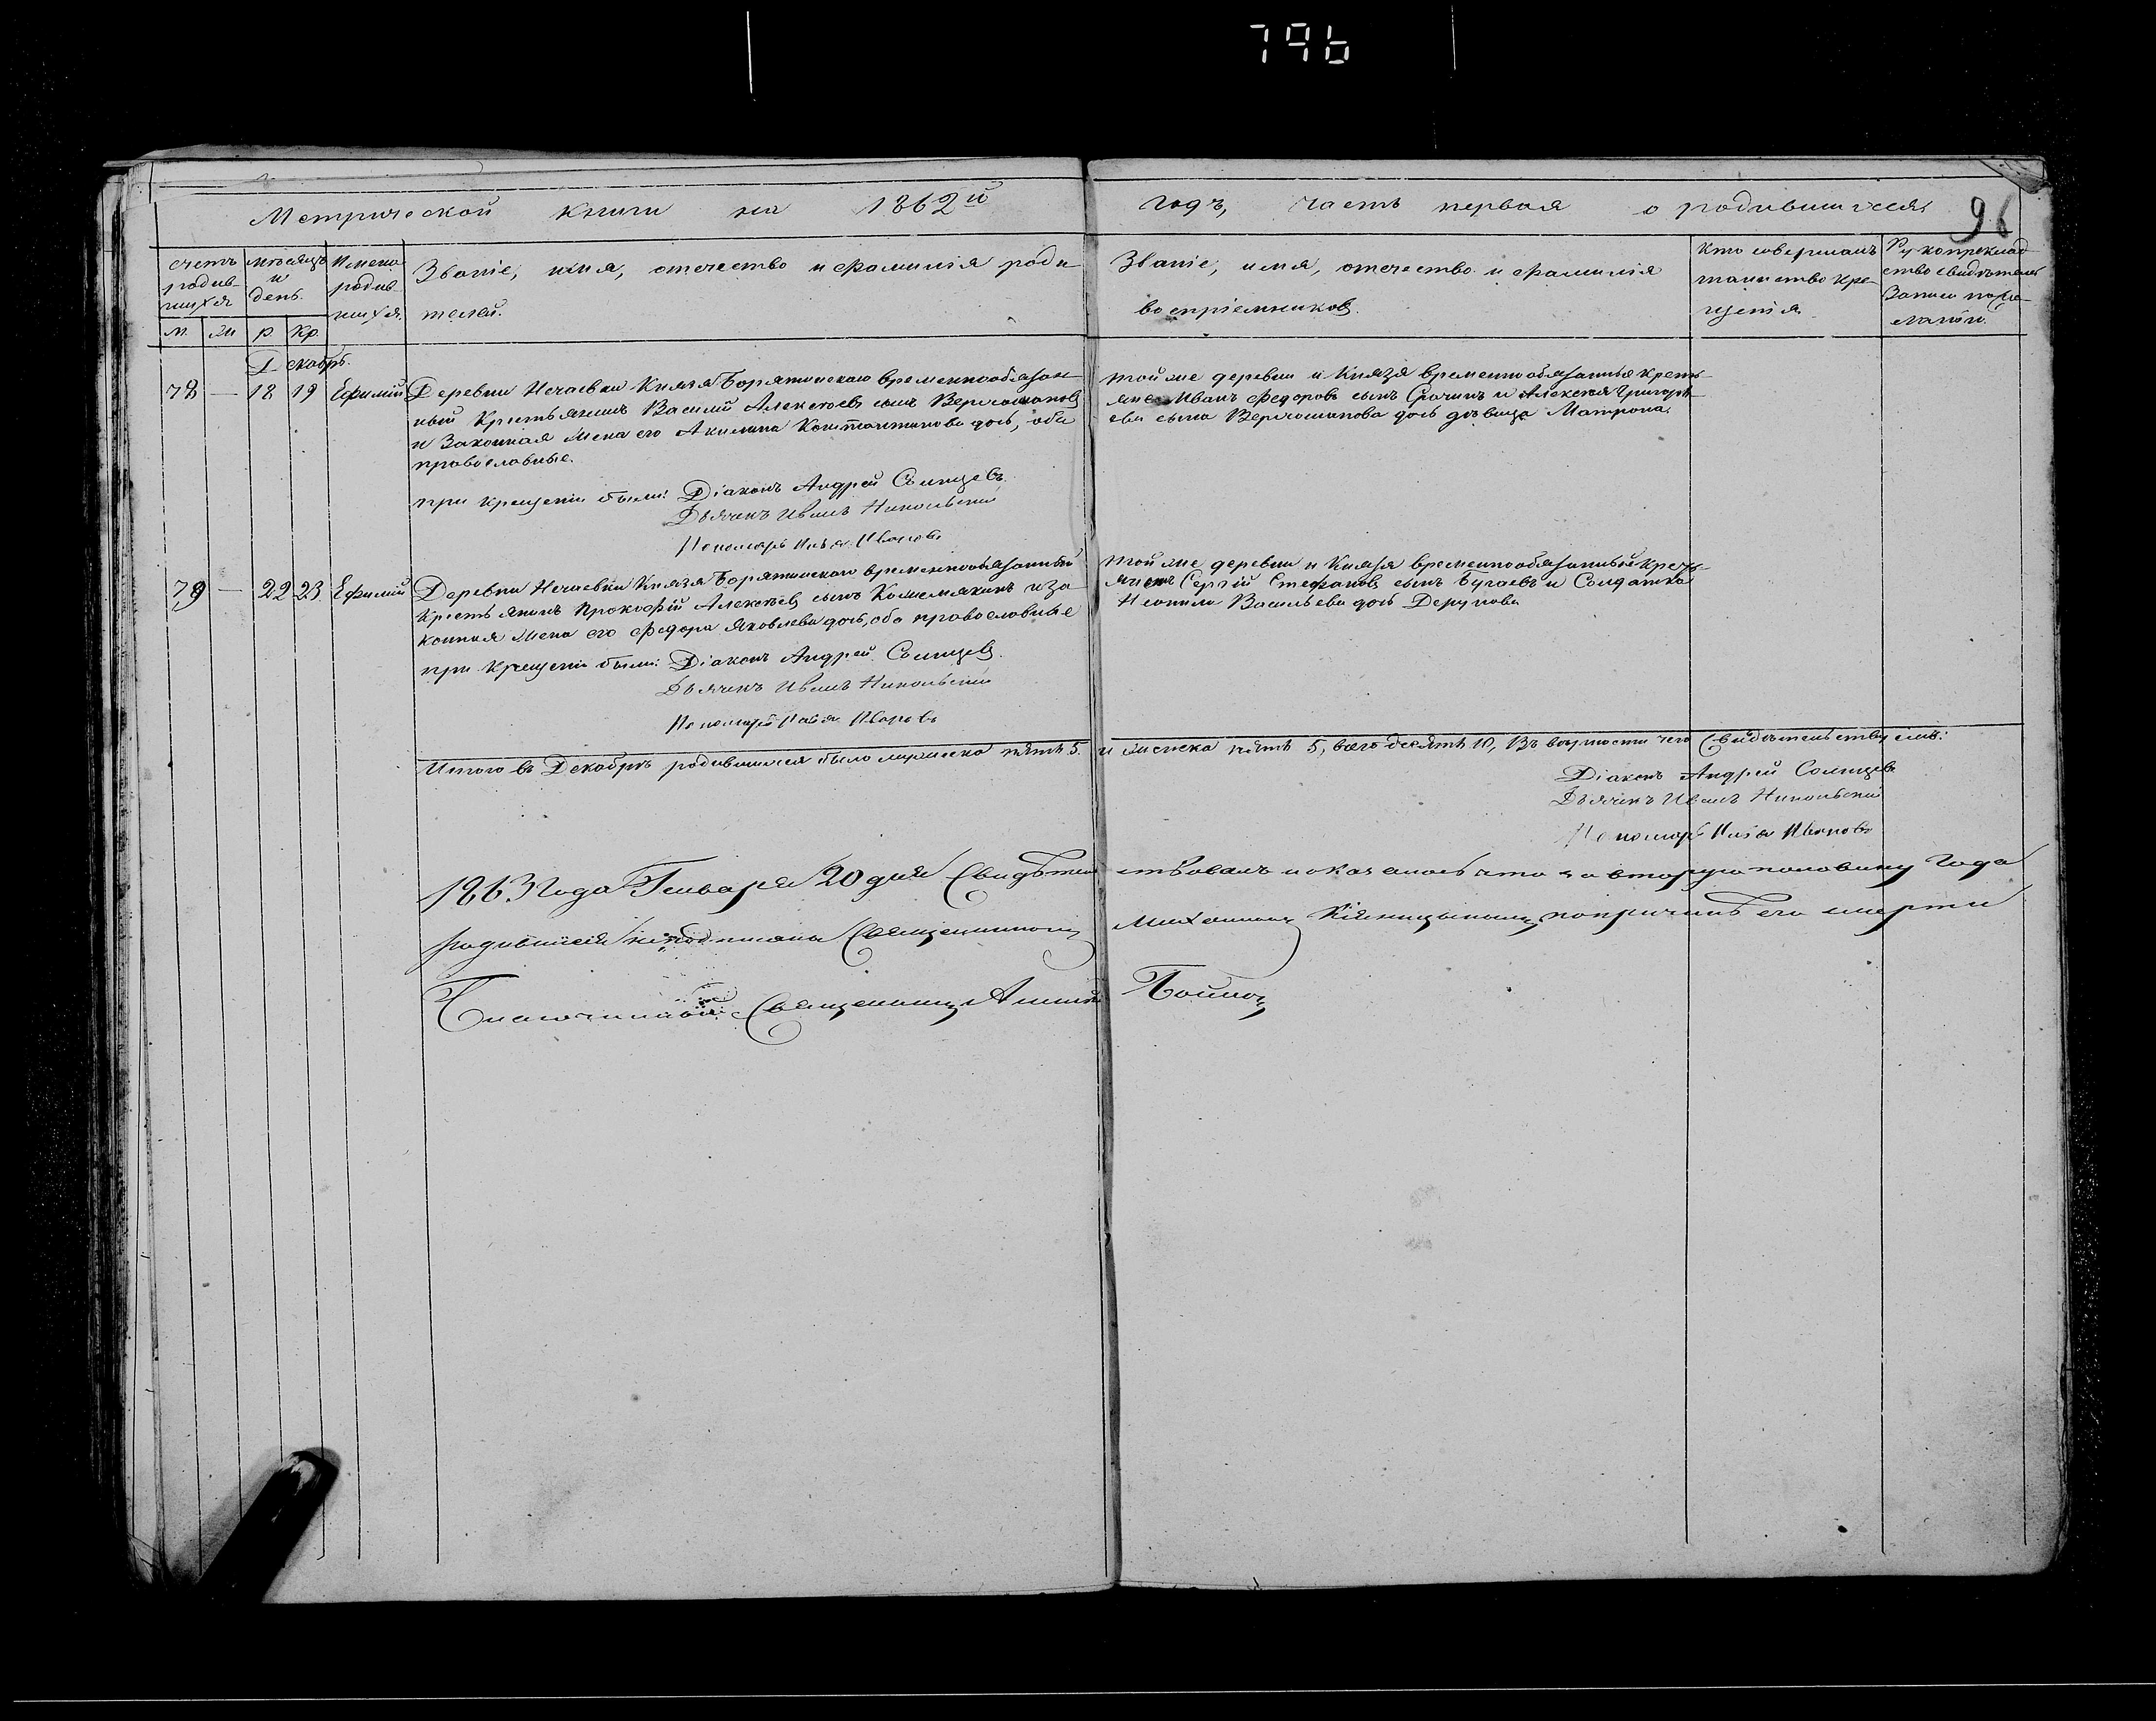 796
Метрической книги на 1862й годъ, часть первая о родившихся
96
счетъ родив-шихся
мѣсяцъ и день.
Имена родив-шихся.
Званіе, имя, отечество и фамилія роди-
телей.
Званіе, имя, отечество и фамилія
воспріемниковъ.
Кто совершалъ
таинство кре-
щенія.
Рукоприклад-
ство свидѣтелей
записи по же-
ланію.
м. ж р. кр.
Декабрь.
78 — 18 19 Ефимій
Деревни Нечаевки Князя Борятинскаго временнообязан-
ный Крестьянинъ Василій Алексѣевъ сынъ
и законная жена его Акилина Константинова дочь, оба
православные.
при крещеніи были: Діаконъ Андрей Солнцевъ
Дьячекъ Иванъ Никольскій
Пономарь Илья Ивановъ
той же деревни и Князя временнообязанныя кресть-
яне Иванъ Федоровъ сынъ и Алексѣя Григорь-
ева сына дочь дѣвица Матрона.
79 — 22 23 Ефимій
Деревни Нечаевки Князя Борятинскаго временнообязанный
Крестьянинъ Прокофій Алексѣевъ сынъ Кожемякинъ и за-
конная жена его Федора Яковлева дочь, оба православные
при крещеніи были: Діаконъ Андрей Солнцевъ.
Дьячекъ Иванъ Никольскій
Пономарь Илья Ивановъ
той же деревни и Князя временнообязанный кресть-
янинъ Сергій Стефановъ сынъ Бугаевъ и Солдатка
Неонила Васильева дочь Дерунова
Итого въ Декабрѣ родившихся было мужеска пять 5. и женска пять 5, всего десять 10, Въ вѣрности чего свидѣтельствуемъ:
Діаконъ Андрей Солнцевъ
Дьячекъ Иванъ Никольскій
Пономарь Илья Ивановъ
1863 Года Генваря 20 дня Свидѣтельствовалъ и оказалось что за вторую половину года
родившіеся неподписаны Священникомъ Михаиломъ по причинѣ его смерти
Благочинный Священникъ